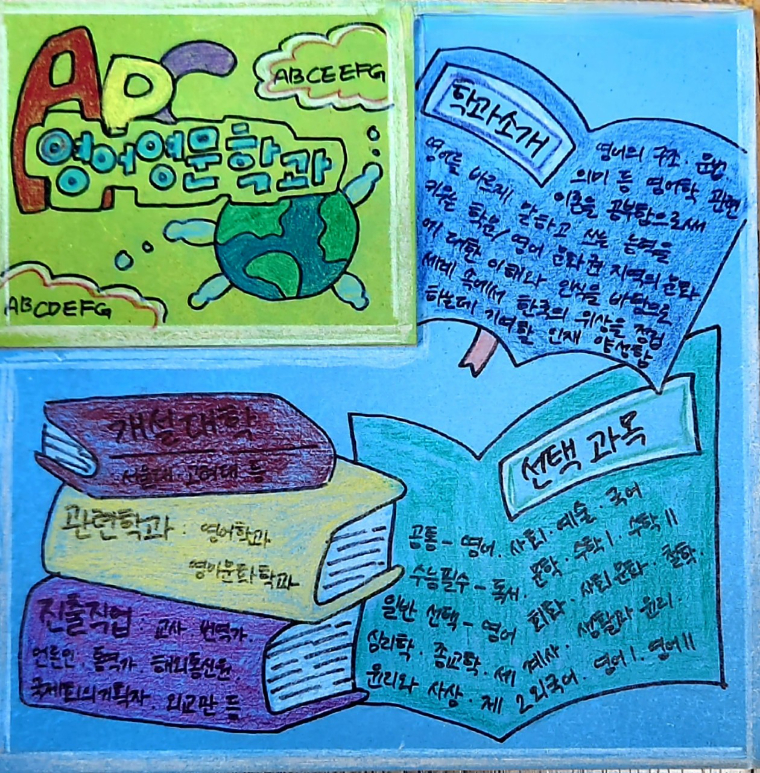 APC
ABCEEFG
영어영문학과
ABCDEFG
학과소개
영어의 구조·문법
의미 등 영어학 관련
이론을 공부함으로써
영어를 바르게 말하고 쓰는 능력을
키울 학문/영어 문화권 지역의 문화
에 대한 이해와 인식을 바탕으로
세계 속에서 한국의 위상을 정립
하는데 기여할 인재 양성함
개설대학
서울대·고려대 등
관련학과 : 영어학과
영어문화학과
진출직업 : 교사 번역가
언론인·통역가 해외통신원
국제회의기획자 외교관 등
선택 과목
공통 - 영어·사회·예술·국어
수능필수 - 독서·문학·수학I·수학II
일반 선택 - 영어 회화·사회문화·철학·
심리학·종교학·세계사·생활과 윤리·
윤리와 사상·제2외국어·영어I·영어II